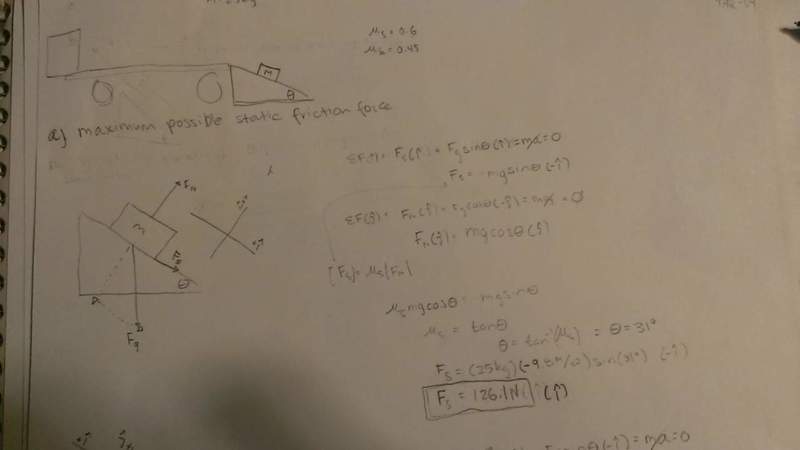 μs = 0.6
μk = 0.45
M
θ
a) maximum possible static friction force
ΣF(î) = Fs(î) + Fg sinθ(î) = ma = 0
Fs = mg sinθ(-î)
ΣF(ĵ) = Fn(ĵ) + Fg cosθ(-ĵ) = ma = 0
Fn(ĵ) = mg cosθ(ĵ)
|Fs| = μs|Fn|
Fn
M
θ
Fg
μs mg cosθ = mg sinθ
μs = tanθ
θ = tan⁻¹(μs) = θ = 31°
Fs = (25kg)(-9.8m/s²) sin(31°) (-î)
Fs = 126.1N (î)
= ma = 0